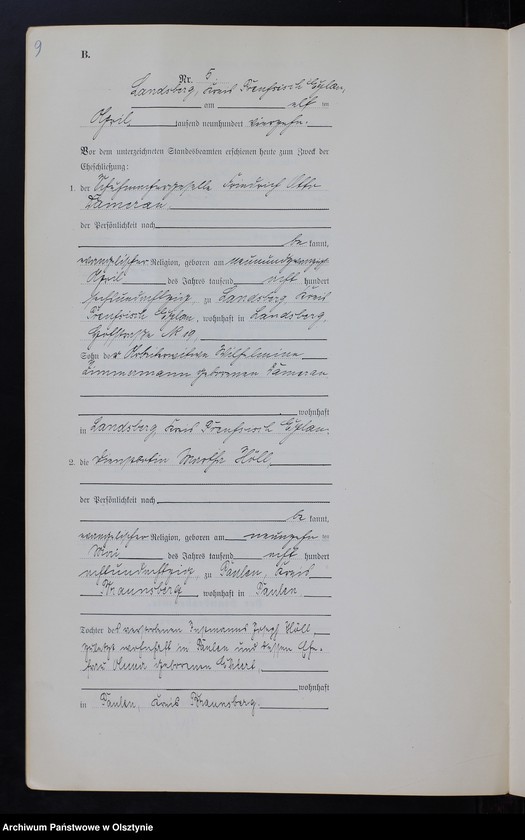 9
B.
Nr. 5
Landsberg, Kreis Preußisch Eylau,
am elf ten
April tausend neunhundert vierzehn.
Vor dem unterzeichneten Standesbeamten erschienen heute zum Zweck der
Eheschließung:
1. der Schuhmachergeselle Friedrich Otto
Tameran
der Persönlichkeit nach
be kannt,
evangelischer Religion, geboren am neunundzwanzigsten
April des Jahres tausend acht hundert
sechsundachtzig zu Landsberg Kreis
Preußisch Eylau, wohnhaft in Landsberg,
No 19,
Sohn der Arbeiterwitwe Wilhelmine
Zimmermann geborenen Tameran
wohnhaft
in Landsberg Kreis Preußisch Eylau.
2. die Martha Höll
der Persönlichkeit nach
be kannt,
evangelischer Religion, geboren am neunzehn ten
Mai des Jahres tausend acht hundert
achtundachtzig zu Paulen, Kreis
Braunsberg, wohnhaft in Paulen
Tochter des verstorbenen Instmanns Joseph Höll,
zuletzt wohnhaft in Paulen und dessen Ehe-
frau geborenen
wohnhaft
in Paulen, Kreis Braunsberg.
Archiwum Państwowe w Olsztynie